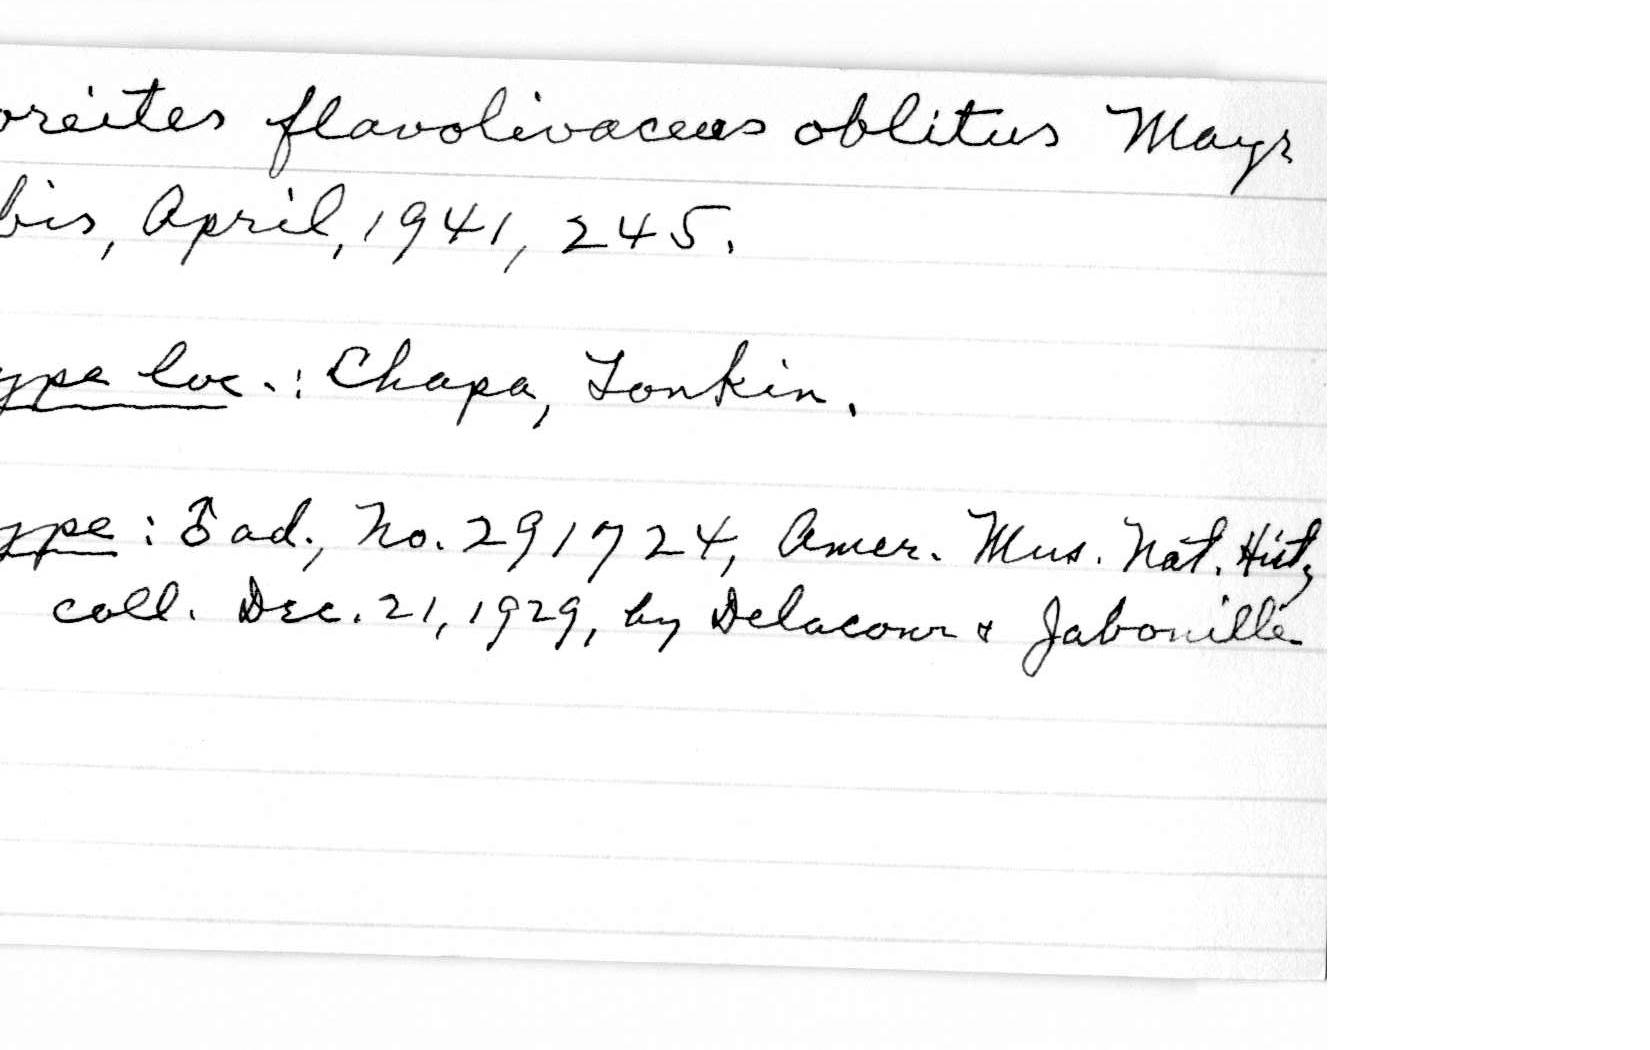 oreites flavolivaceus oblitus Mayr
bis, April, 1941, 245.
ype loc.: Chapa, Tonkin.
ype: ♂ ad., No. 291724, Amer. Mus. Nat. Hist,
coll. Dec. 21, 1929, by Delacour & Jabouille